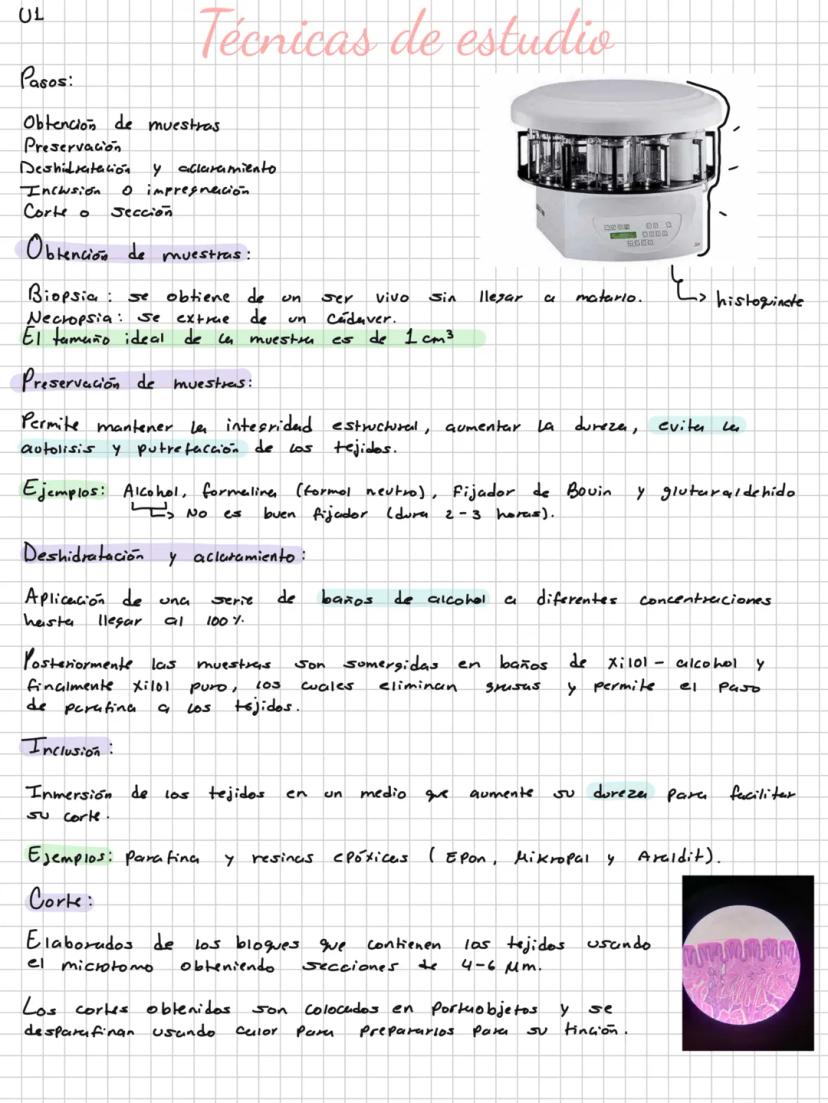 U1
Técnicas de estudio
Pasos:
Obtención de muestras
Preservación
Deshidratación y aclaramiento
Inclusión o impregnación
Corte o sección
Obtención de muestras:
Biopsia: se obtiene de un ser vivo sin llegar a matarlo.
histoquinete
Necropsia: se extrae de un cádaver.
El tamaño ideal de la muestra es de 1 cm³
Preservación de muestras:
Permite mantener la integridad estructural, aumentar la dureza, evita la
autolisis y putrefacción de los tejidos.
Ejemplos: Alcohol, formalina (formol neutro), Fijador de Bouin y glutaraldehido
No es buen fijador (dura 2-3 horas).
Deshidratación y aclaramiento:
Aplicación de una serie de baños de alcohol a diferentes concentraciones
hasta llegar al 100%.
Posteriormente las muestras son somergidas en baños de xilol - alcohol y
finalmente xilol puro, los cuales eliminan grasas y permite el paso
de parafina a los tejidos.
Inclusión:
Inmersión de los tejidos en un medio que aumente su dureza para facilitar
su corte.
Ejemplos: Parafina y resinas epóxicas (Epon, Mikropal y Araldit).
Corte:
Elaborados de los bloques que contienen los tejidos usando
el microtomo obteniendo secciones de 4-6 Mm.
Los cortes obtenidos son colocados en portaobjetos y se
desparafinan usando calor para prepararlos para su tinción.